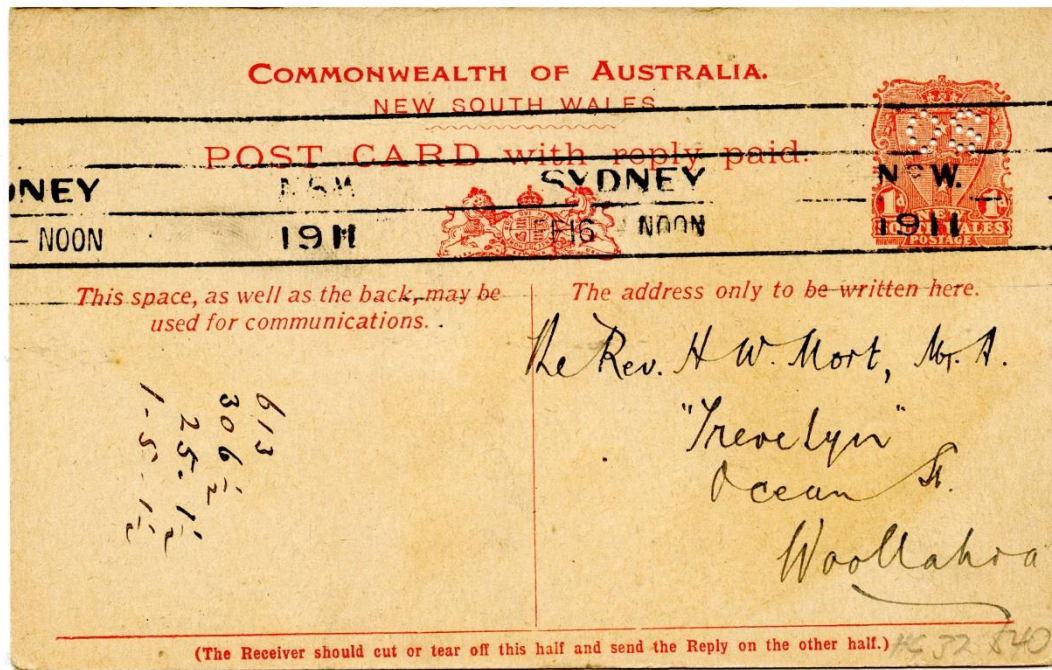 COMMONWEALTH OF AUSTRALIA.
NEW SOUTH WALES
POST CARD with reply paid.
OS
DNEY N.S.W. SYDNEY N.S.W.
— NOON 1911 FE 16 NOON 1911
1d 1d
NEW
SOUTH WALES
POSTAGE
This space, as well as the back, may be
used for communications.
The address only to be written here.
The Rev. H W. Mort, M. A.
"Trevelyn"
Ocean St.
Woollahra
613
306½
25.1½
1-5-1½
(The Receiver should cut or tear off this half and send the Reply on the other half.)
HG 32 $40